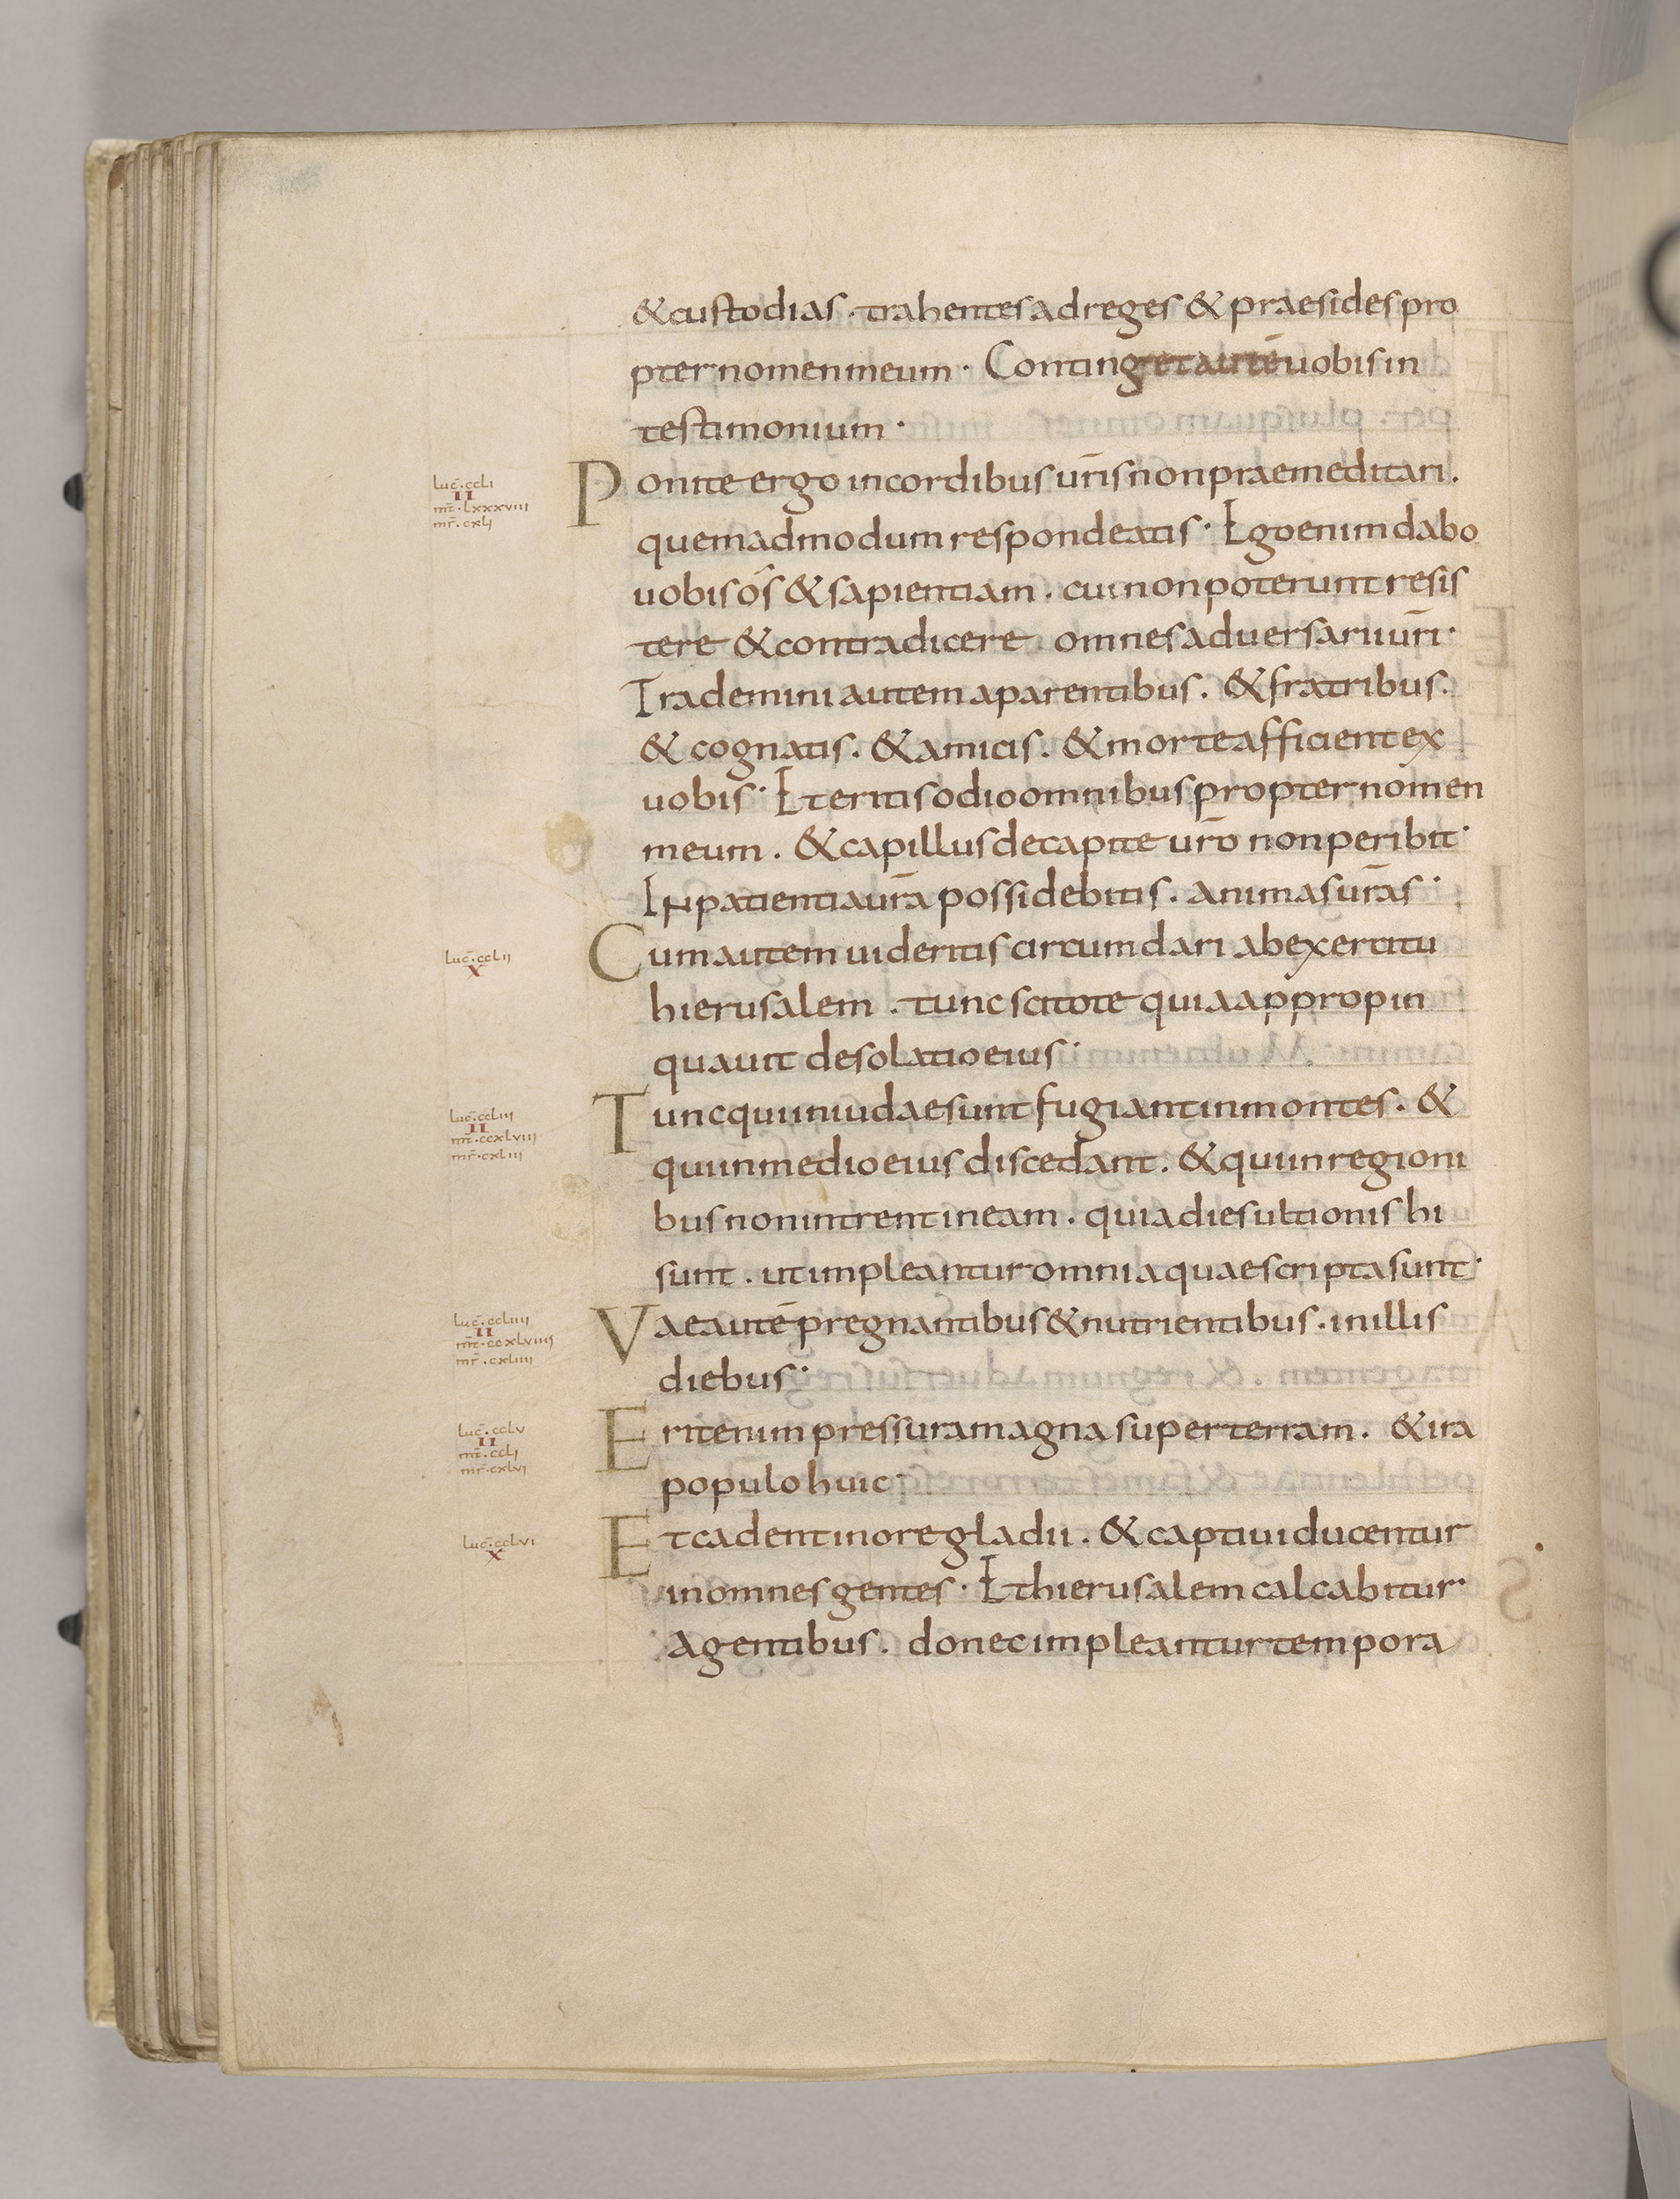 & custodias · trahentes ad reges & praesides pro
pter nomen meum · Continget autē uobis in
testimonium ·
luc̄ · ccli
II
mt̄ · lxxxviii
mr̄ · cxli
Ponite ergo in cordibus ur̄is non praemeditari .
quemadmodum respondeatis · Ego enim dabo
uobis os & sapientiam . cui non poterunt resis
tere & contradicere omnes aduersarii ur̄i ·
Trademini autem a parentibus . & fratribus .
& cognatis . & amicis . & morte afficient ex
uobis · Et eritis odio omnibus propter nomen
meum . & capillus de capite ur̄o non peribit ·
IN patientia ur̄a possidebitis . animas ur̄as ·
luc̄ · cclii
X
Cum autem uideritis circumdari ab exercitu
hierusalem . tunc scitote quia appropin
quauit desolatio eius ·
luc̄ · ccliii
II
mt̄ · ccxlviii
mr̄ · cxliii
Tunc qui in iudae sunt fugiant in montes . &
qui in medio eius discedant . & qui in regioni
bus non intrent in eam . quia dies ultionis hi
sunt . ut impleantur omnia quae scripta sunt ·
luc̄ · ccliiii
II
mt̄ · ccxlviiii
mr̄ · cxliiii
Vae autē pregnantibus & nutrientibus . in illis
diebus ·
luc̄ · cclv
II
mt̄ · ccli
mr̄ · cxlvi
Erit enim pressura magna super terram . & ira
populo huic ·
luc̄ · cclvi
X
Et cadent in ore gladii . & captiui ducentur
in omnes gentes · Et hierusalem calcabitur
a gentibus . donec impleantur tempora